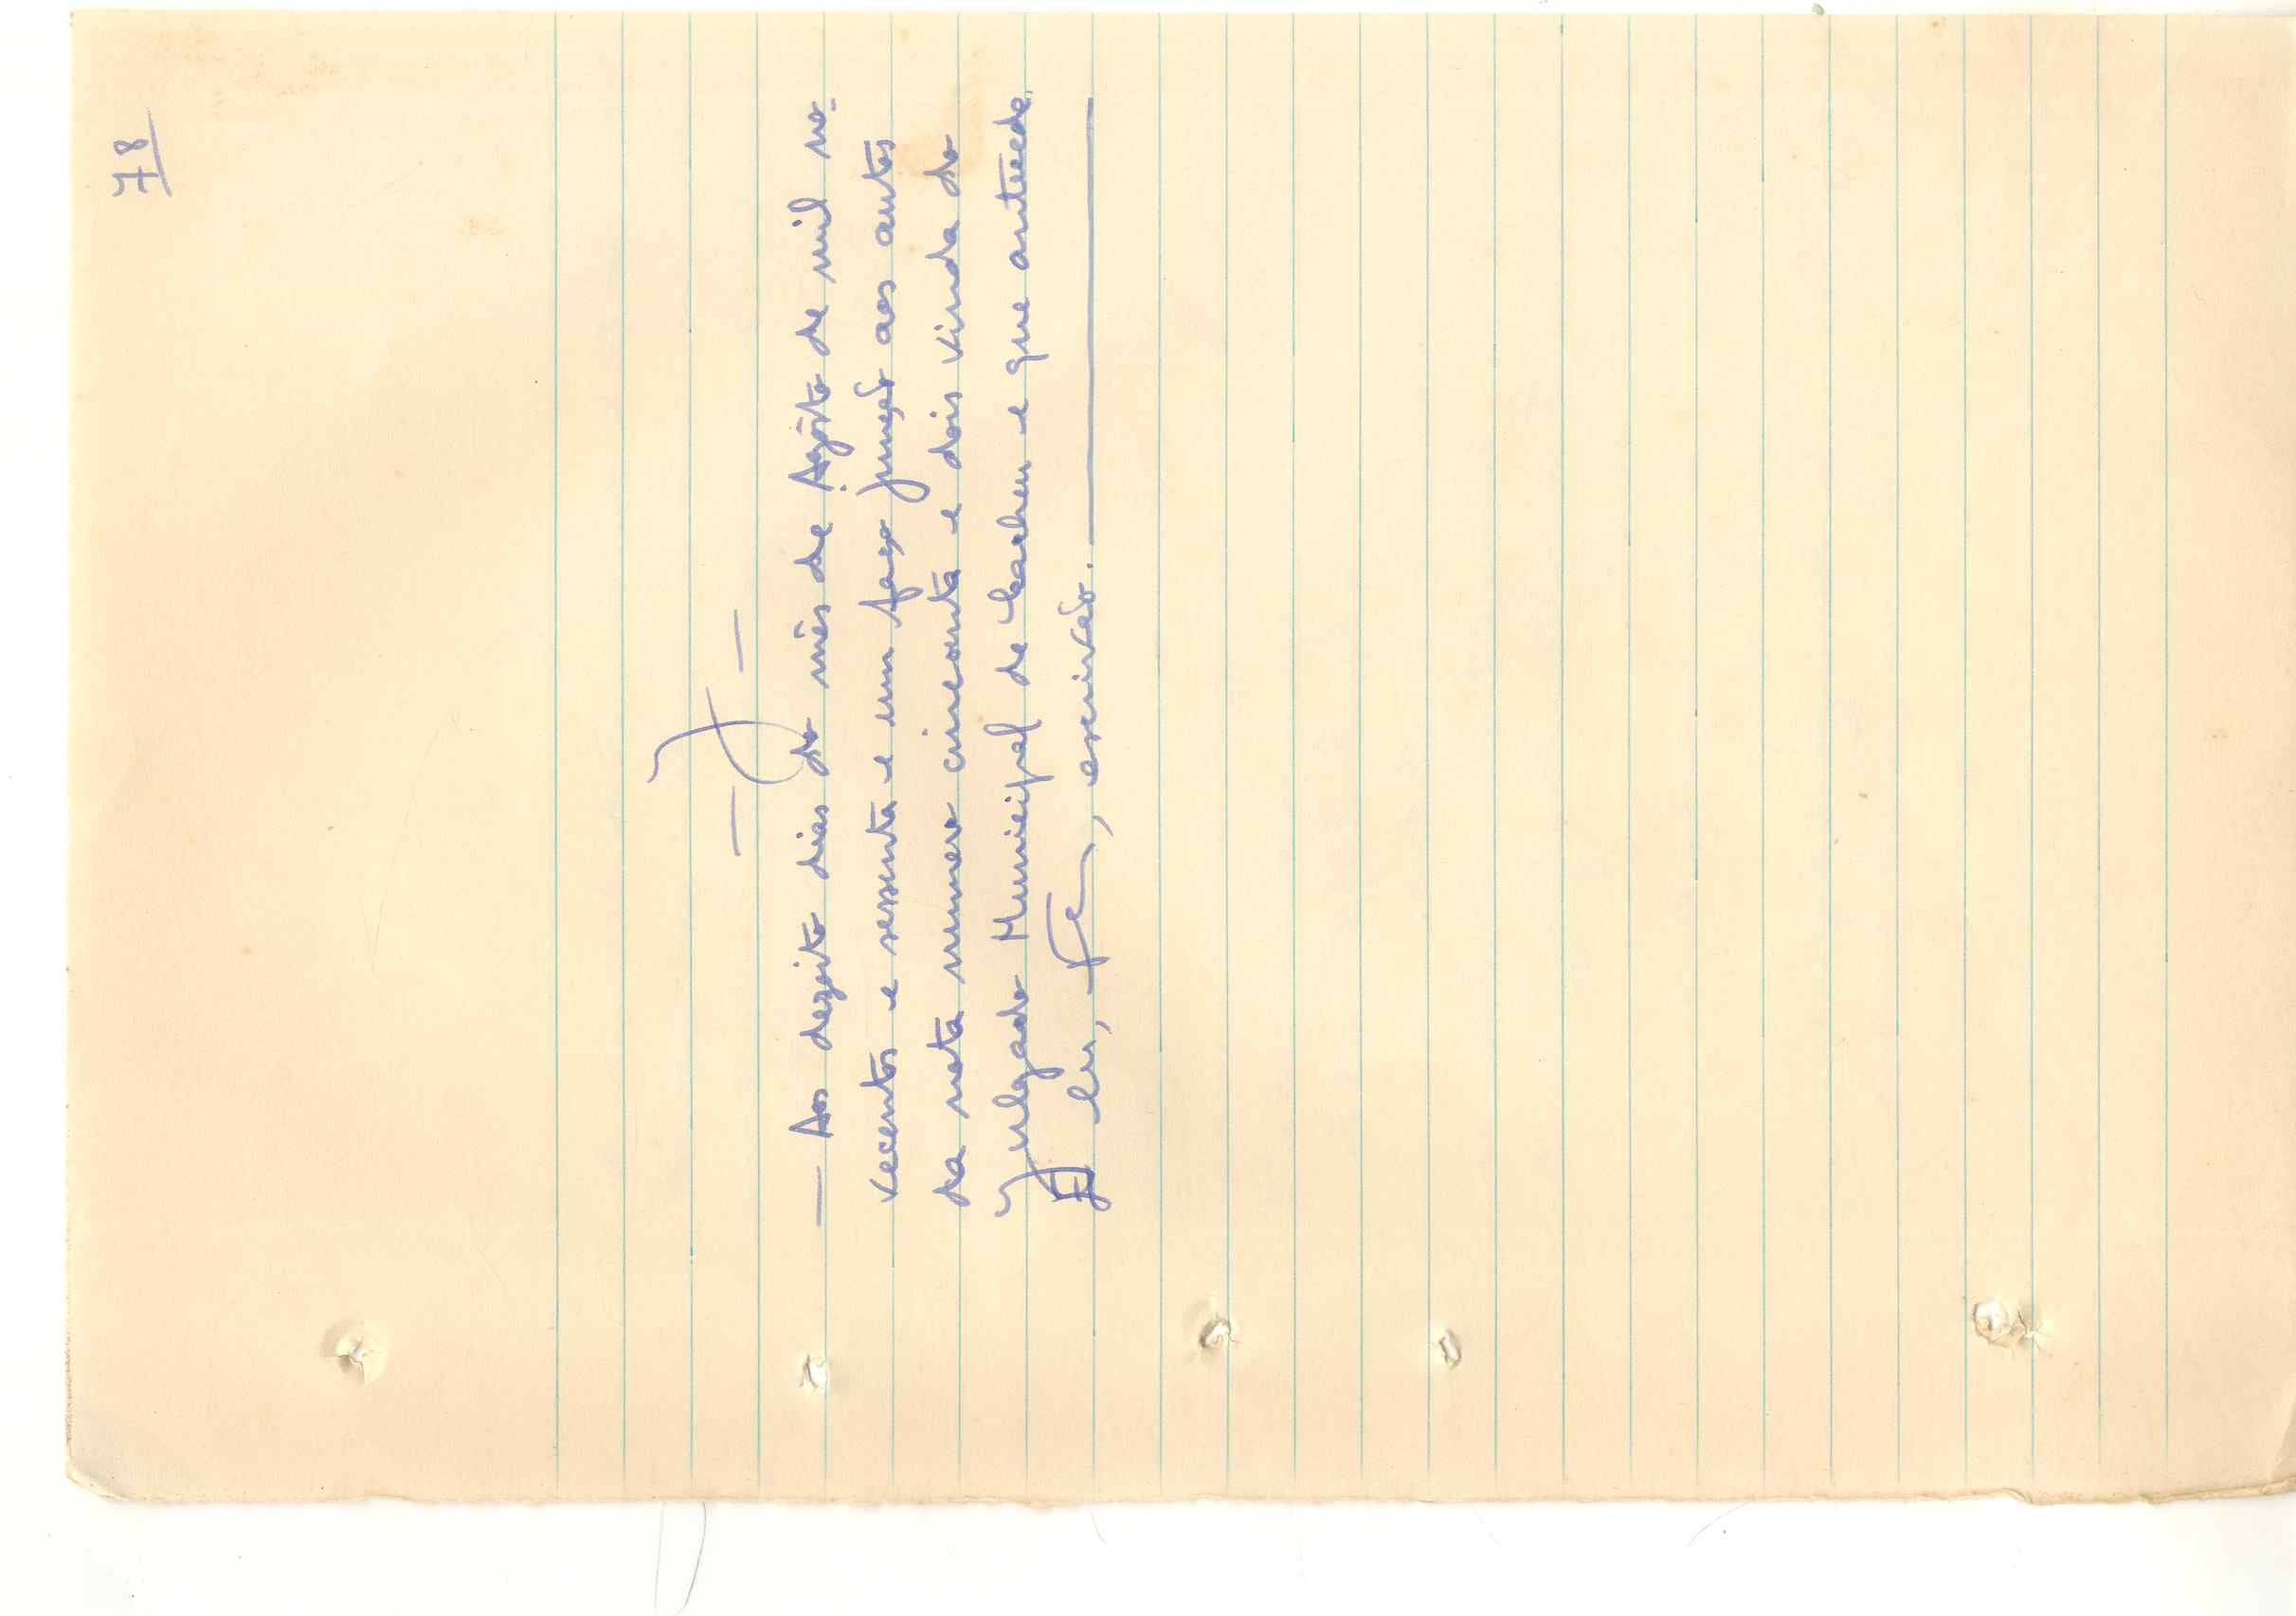 78
— J —
— Aos dezoito dias do mês de Agôsto de mil no-
vecentos e sessenta e um faço junção aos autos
da nota numero cincoenta e dois vinda do
Julgado Municipal de Cacheu e que antecede.
Eu, , escrivão.